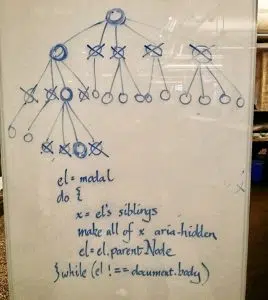 el = modal
do {
x = el's siblings
make all of x aria-hidden
el = el.parentNode
} while (el !== document.body)